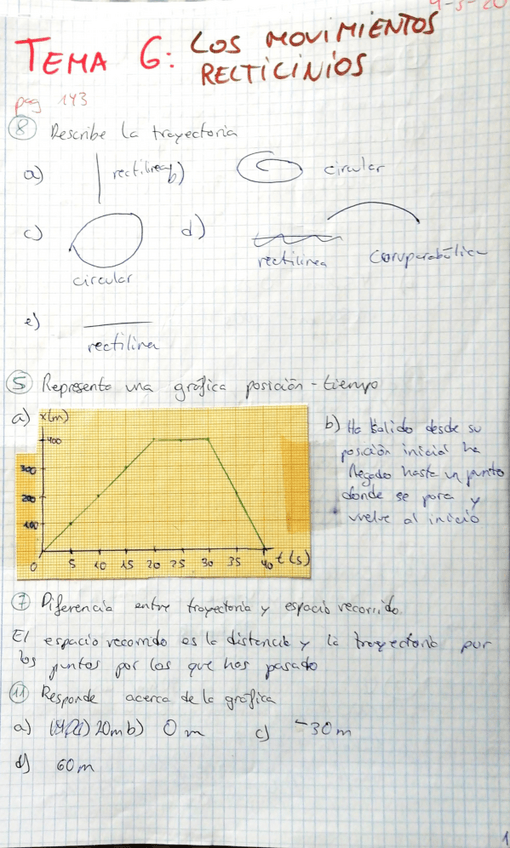 4-5-20
TEMA 6: LOS MOVIMIENTOS
RECTICINIOS
pag 143
⑧ Describe la trayectoria
a) rectilinea b) circular
c) d)
rectilinea parabólica
circular
e)
rectilinea
⑤ Representa una gráfica posición-tiempo
a) x(m) b) Ha salido desde su
400 posición inicial ha
300 llegado hasta un punto
200 donde se para y
100 vuelve al inicio
0 5 10 15 20 25 30 35 40 t(s)
⑦ Diferencia entre trayectoria y espacio recorrido.
El espacio recorrido es la distancia y la trayectoria por
los puntos por los que has pasado
⑪ Responde acerca de la gráfica
a) 20m b) 0 m c) -30 m
d) 60 m
1